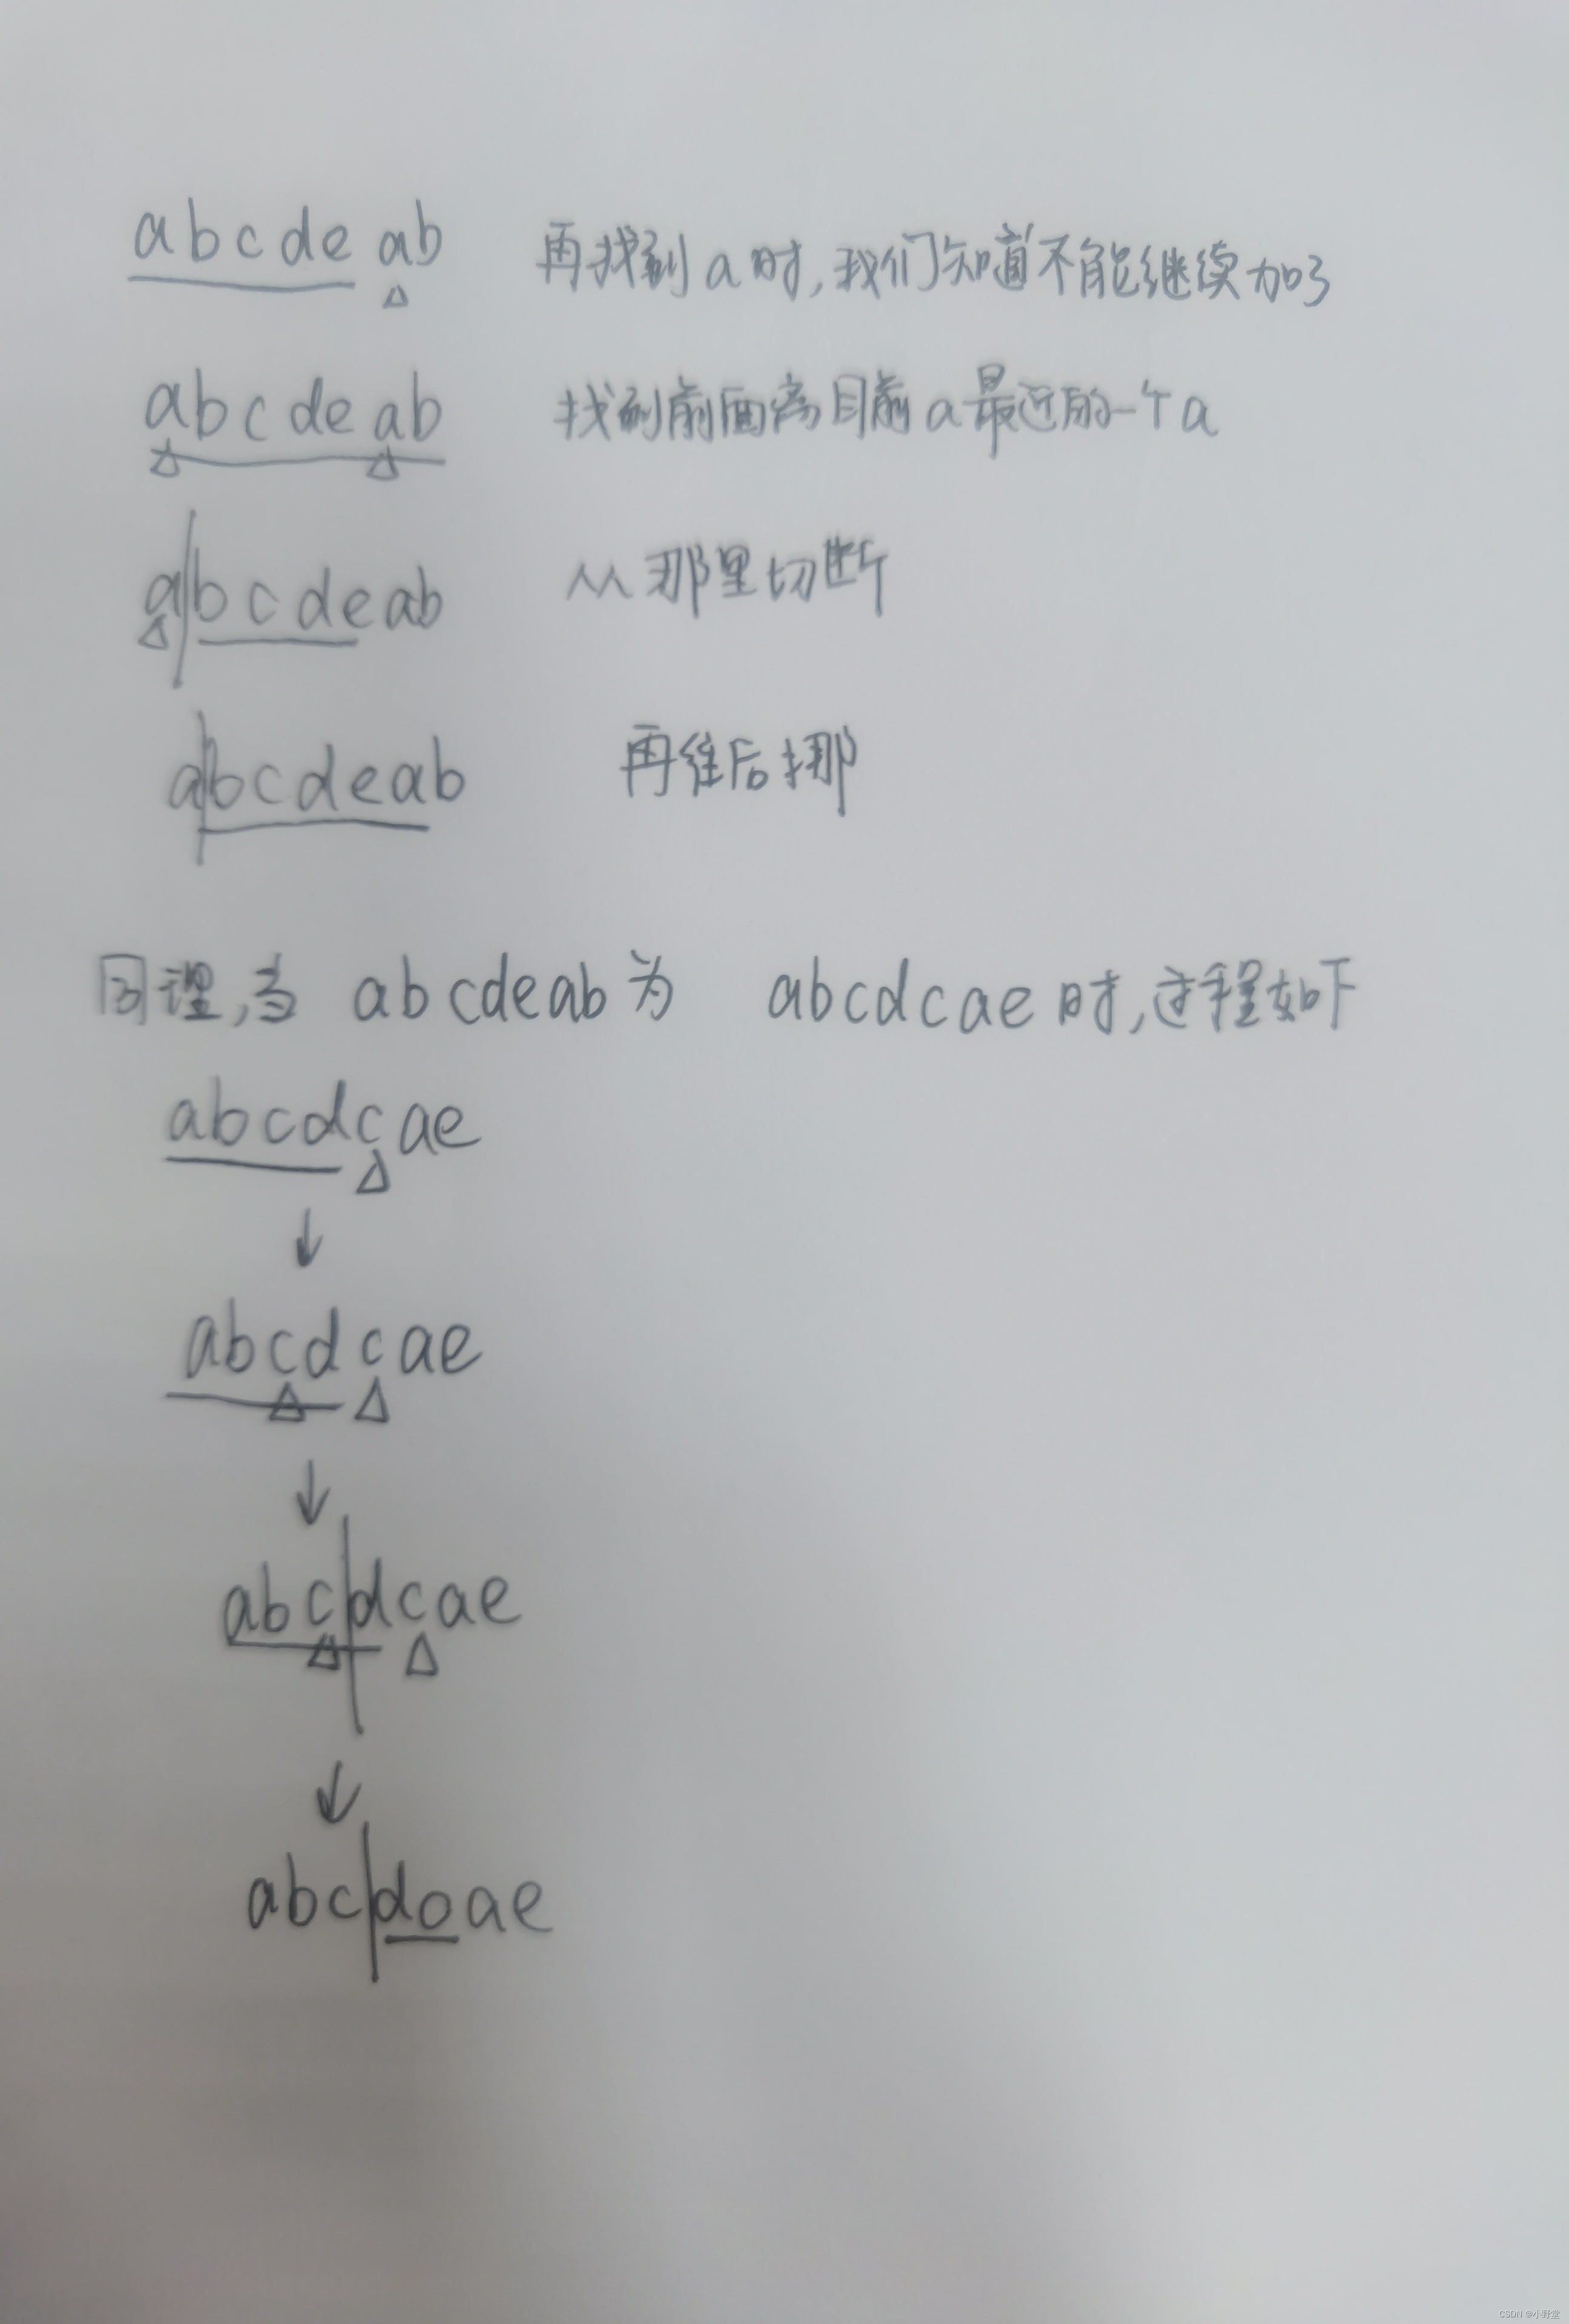 abcdeab 再找到a时,我们知道不能继续加了
abcdeab 找到前面离目前a最近的一个a
abcdeab 从那里切断
abcdeab 再往后挪
同理,当 abcdeab为 abcdcae时,过程如下
abcdcae
abcdcae
abcdcae
abcdcae
CSDN @小野堂